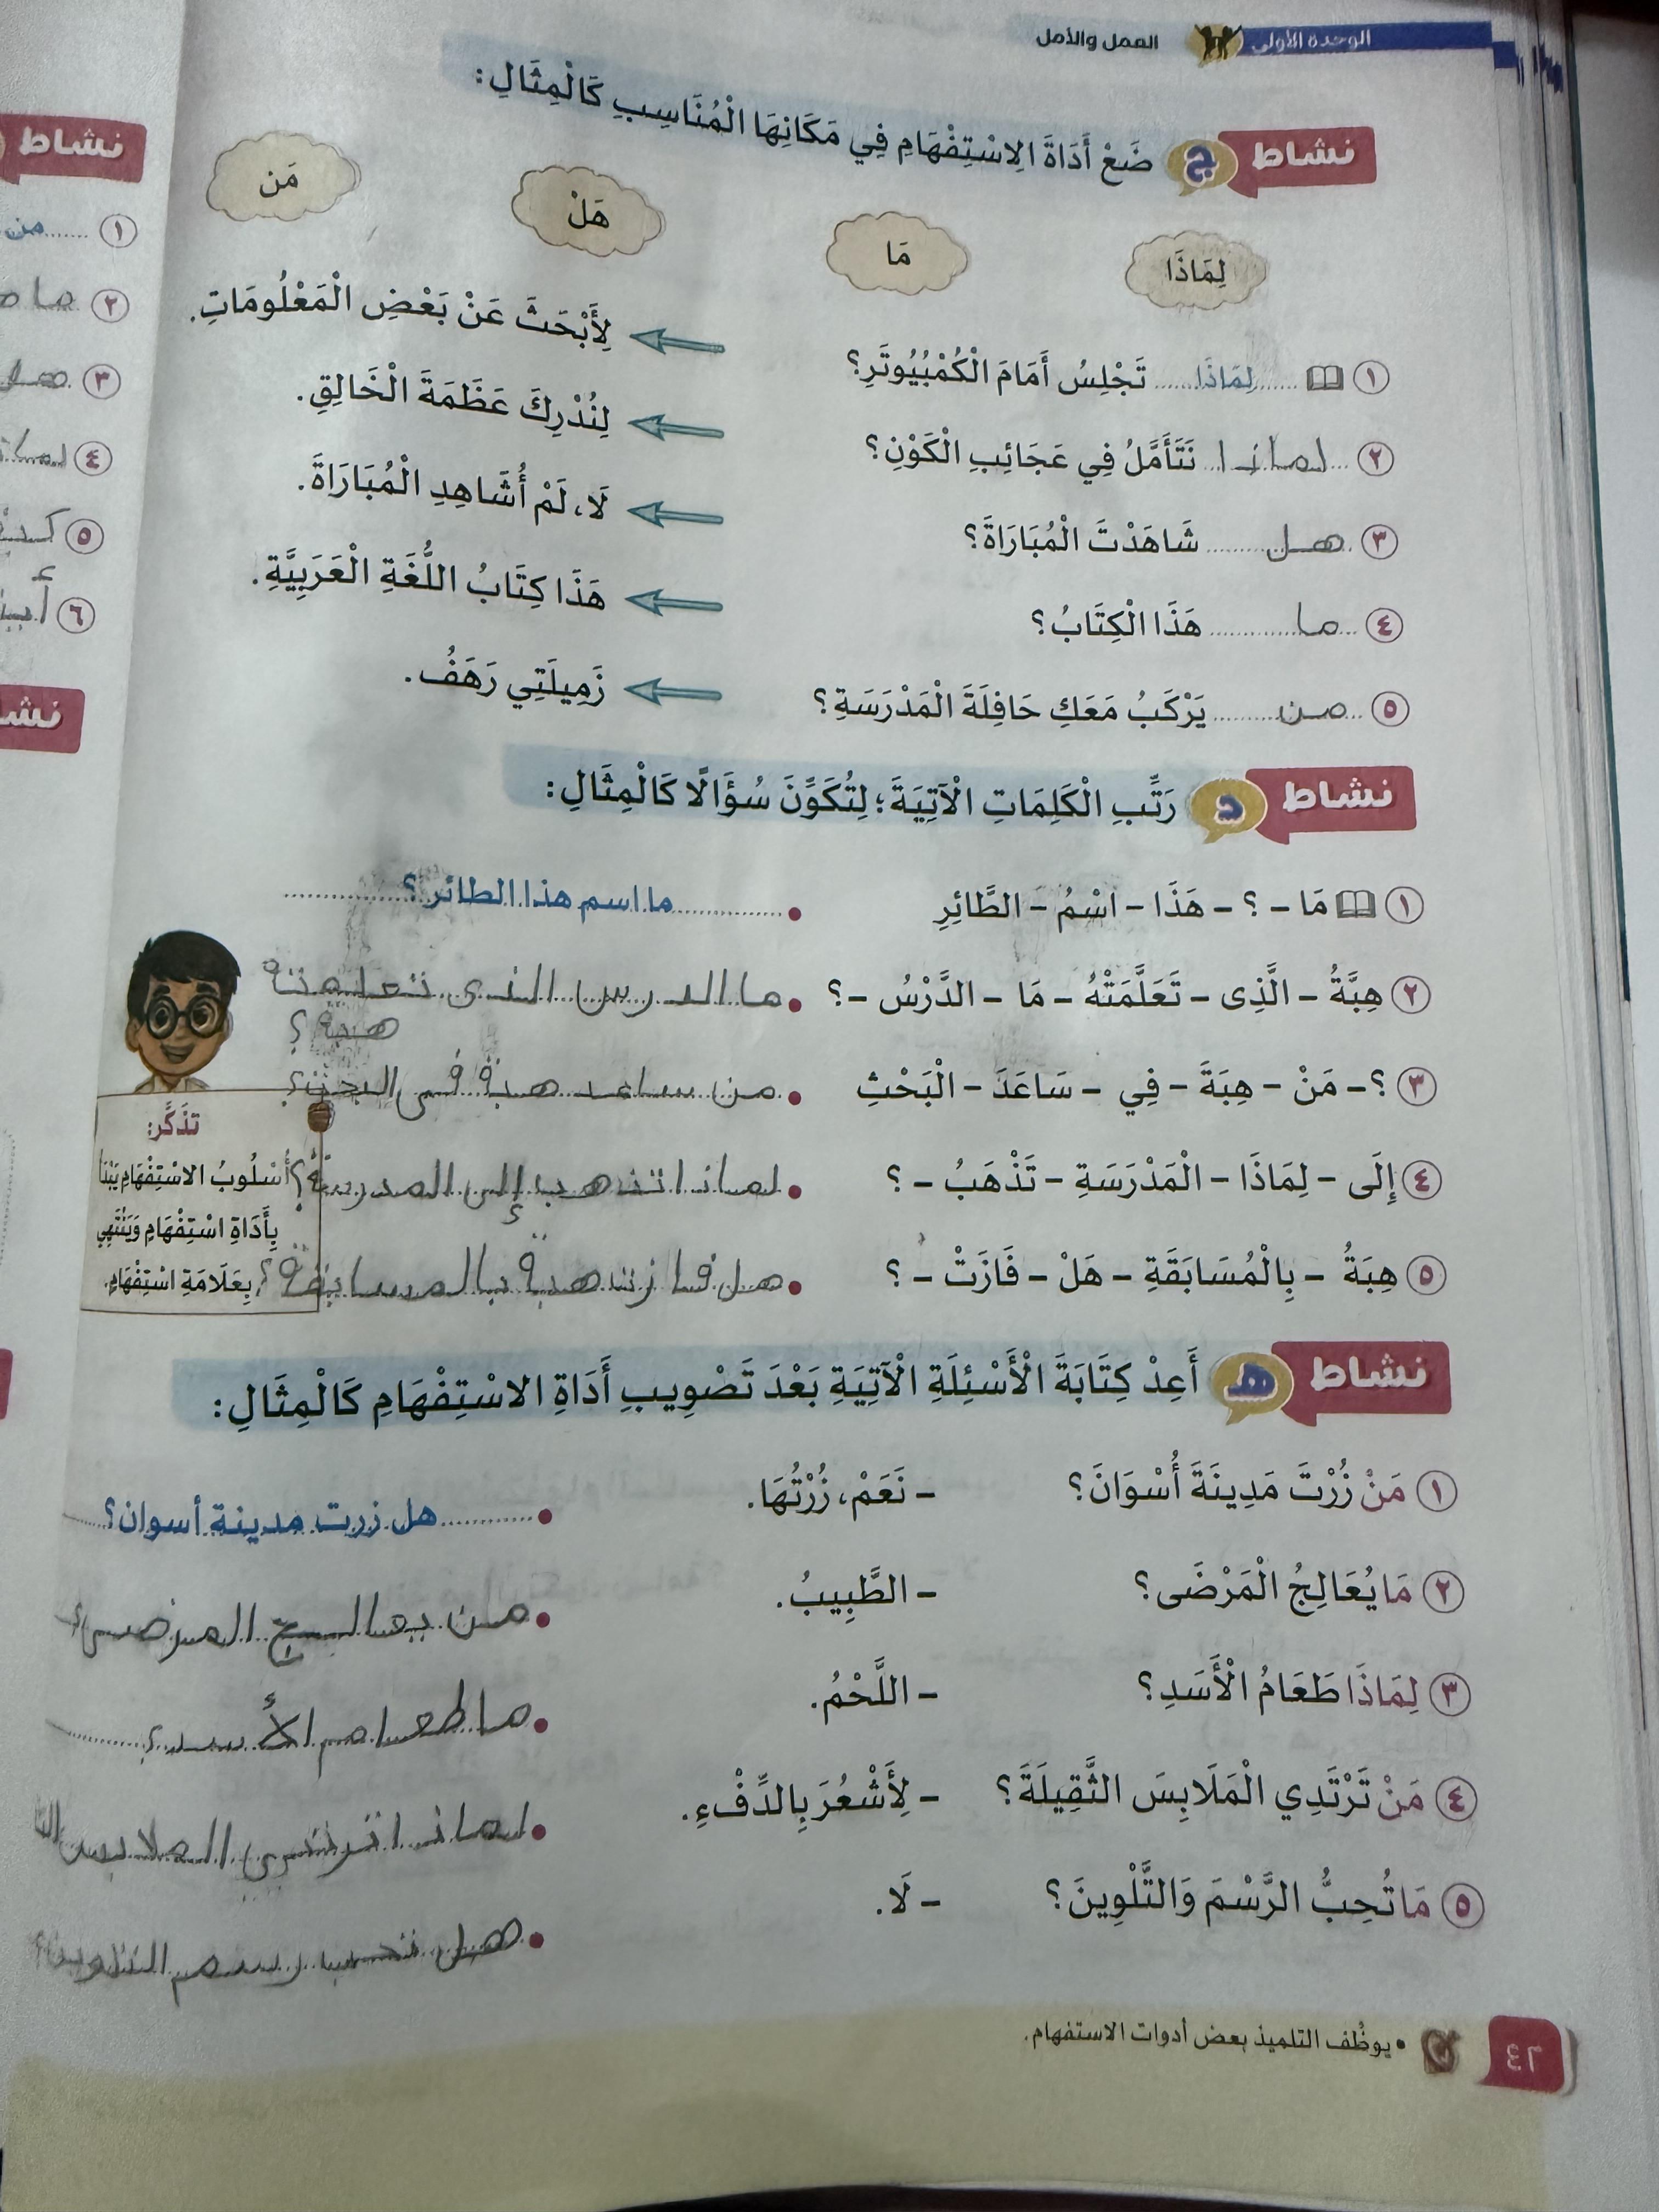 الوحدة الأولى العمل والأمل
نشاط ج ضَعْ أَدَاةَ الِاسْتِفْهَامِ فِي مَكَانِهَا الْمُنَاسِبِ كَالْمِثَالِ:
لِمَاذَا مَا هَلْ مَن
١ لِمَاذَا تَجْلِسُ أَمَامَ الْكُمْبُيُوتَرِ؟ لِأَبْحَثَ عَنْ بَعْضِ الْمَعْلُومَاتِ.
٢ لماذا نَتَأَمَّلُ فِي عَجَائِبِ الْكَوْنِ؟ لِنُدْرِكَ عَظَمَةَ الْخَالِقِ.
٣ هل شَاهَدْتَ الْمُبَارَاةَ؟ لَا، لَمْ أُشَاهِدِ الْمُبَارَاةَ.
٤ ما هَذَا الْكِتَابُ؟ هَذَا كِتَابُ اللُّغَةِ الْعَرَبِيَّةِ.
٥ من يَرْكَبُ مَعَكِ حَافِلَةَ الْمَدْرَسَةِ؟ زَمِيلَتِي رَهَفُ.
نشاط د رَتِّبِ الْكَلِمَاتِ الْآتِيَةَ؛ لِتُكَوِّنَ سُؤَالًا كَالْمِثَالِ:
١ مَا - ؟ - هَذَا - اسْمُ - الطَّائِرِ • ما اسم هذا الطائر؟
٢ هِبَّةُ - الَّذِى - تَعَلَّمَتْهُ - مَا - الدَّرْسُ - ؟ • ما الدرس الذى تعلمته
هبة؟
٣ ؟ - مَنْ - هِبَةَ - فِي - سَاعَدَ - الْبَحْثِ • من ساعد هبة فى البحث؟
٤ إِلَى - لِمَاذَا - الْمَدْرَسَةِ - تَذْهَبُ - ؟ • لماذا تذهب إلى المدرسة؟
٥ هِبَةُ - بِالْمُسَابَقَةِ - هَلْ - فَازَتْ - ؟ • هل فازت هبة بالمسابقة؟
تَذَكَّر:
أُسْلُوبُ الاسْتِفْهَامِ يَبْدَأُ
بِأَدَاةِ اسْتِفْهَامٍ وَيَنْتَهِي
بِعَلَامَةِ اسْتِفْهَامٍ.
نشاط هـ أَعِدْ كِتَابَةَ الْأَسْئِلَةِ الْآتِيَةِ بَعْدَ تَصْوِيبِ أَدَاةِ الاسْتِفْهَامِ كَالْمِثَالِ:
١ مَنْ زُرْتَ مَدِينَةَ أُسْوَانَ؟ - نَعَمْ، زُرْتُهَا. • هل زرت مدينة أسوان؟
٢ مَا يُعَالِجُ الْمَرْضَى؟ - الطَّبِيبُ. • من يعالج المرضى؟
٣ لِمَاذَا طَعَامُ الْأَسَدِ؟ - اللَّحْمُ. • ما طعام الأسد؟
٤ مَنْ تَرْتَدِي الْمَلَابِسَ الثَّقِيلَةَ؟ - لِأَشْعُرَ بِالدِّفْءِ. • لماذا ترتدى الملابس
٥ مَا تُحِبُّ الرَّسْمَ وَالتَّلْوِينَ؟ - لَا. • هل تحب رسم التلوين؟
• يوظِّف التلميذ بعض أدوات الاستفهام.
نشاط
١ من
٢
٣
٤
٥
٦